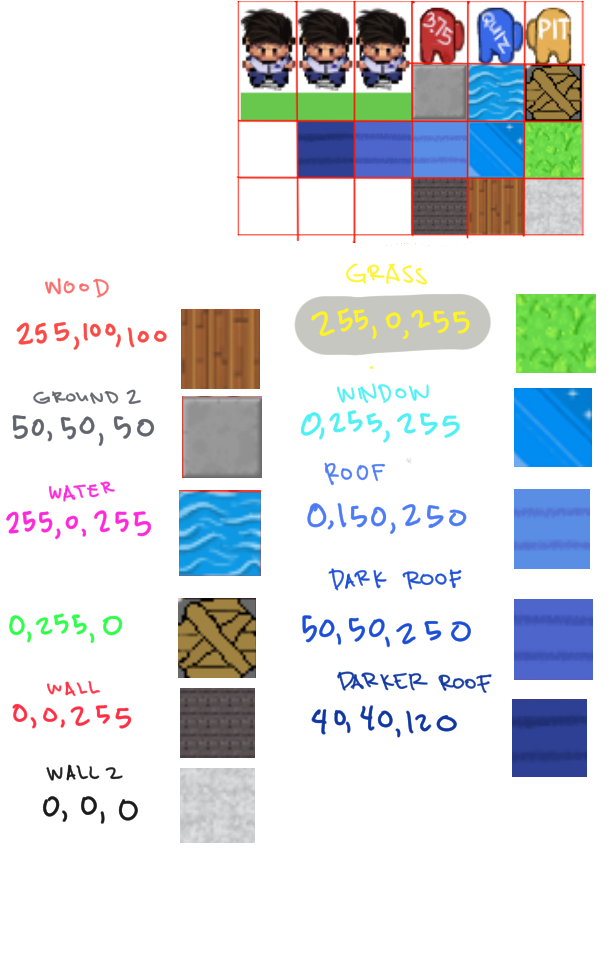 3.75
QUIZ
PIT
WOOD
255,100,100
GROUND 2
50, 50, 50
WATER
255, 0, 255
0, 255, 0
WALL
0, 0, 255
WALL 2
0, 0, 0
GRASS
255, 0, 255
WINDOW
0,255, 255
ROOF
0,150, 250
DARK ROOF
50, 50, 250
DARKER ROOF
40, 40, 120